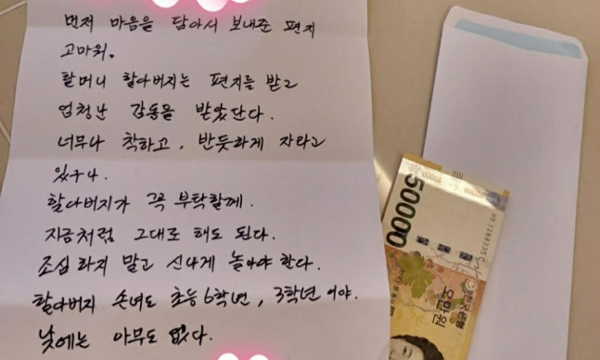 먼저 마음을 담아서 보내준 편지
고마워.
할머니 할아버지는 편지를 받고
엄청난 감동을 받았단다.
너무나 착하고, 반듯하게 자라고
있구나.
할아버지가 꼭 부탁할께.
지금처럼 그대로 해도 된다.
조심 하지 말고 신나게 놀아야 한다.
할아버지 손녀도 초등6학년, 3학년 이야.
낮에는 아무도 없다.
50000
한국은행
오만원